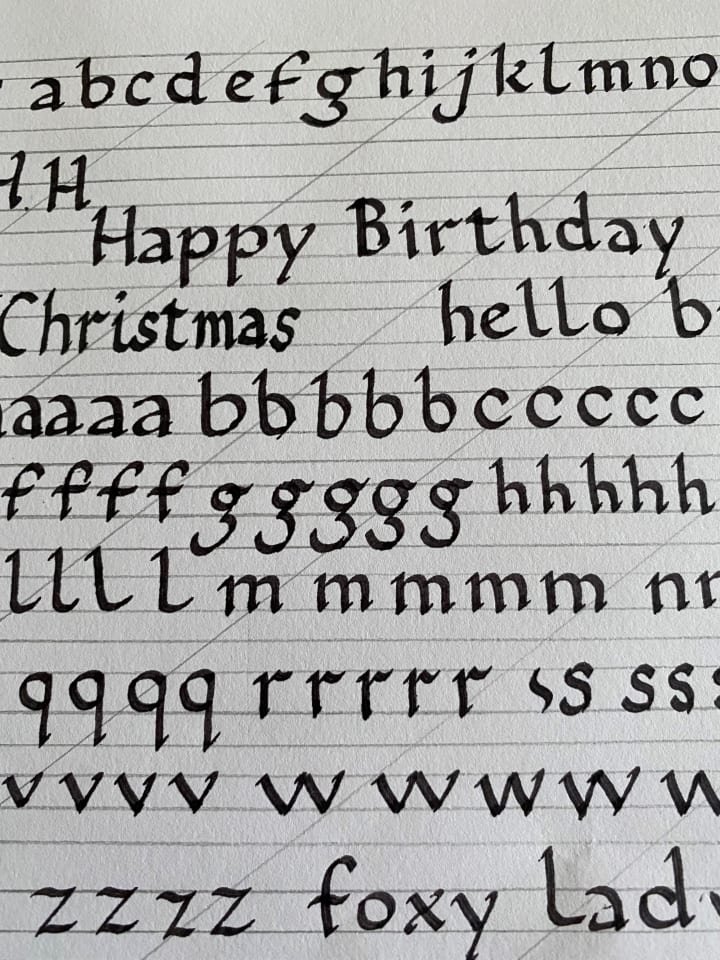 a b c d e f g h i j k l m n o
H H
Happy Birthday
Christmas hello
a a a a b b b b b c c c c c
f f f f g g g g g h h h h h
l l l l m m m m m n
q q q q r r r r r s s s s
v v v v w w w w
z z z z foxy